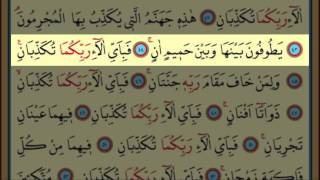 اٰلَٓاءِ رَبِّكُمَا تُكَذِّبَانِ ﴿٤٢﴾ هٰذِهٖ جَهَنَّمُ الَّتٖى يُكَذِّبُ بِهَا الْمُجْرِمُونَ
﴿٤٣﴾ يَطُوفُونَ بَيْنَهَا وَبَيْنَ حَمٖيمٍ اٰنٍ ﴿٤٤﴾ فَبِاَىِّ اٰلَٓاءِ رَبِّكُمَا تُكَذِّبَانِ
﴿٤٥﴾ وَلِمَنْ خَافَ مَقَامَ رَبِّهٖ جَنَّتَانِ ﴿٤٦﴾ فَبِاَىِّ اٰلَٓاءِ رَبِّكُمَا تُكَذِّبَانِ
﴿٤٧﴾ ذَوَاتَٓا اَفْنَانٍ ﴿٤٨﴾ فَبِاَىِّ اٰلَٓاءِ رَبِّكُمَا تُكَذِّبَانِ ﴿٤٩﴾ فٖيهِمَا عَيْنَانِ
تَجْرِيَانِ ﴿٥٠﴾ فَبِاَىِّ اٰلَٓاءِ رَبِّكُمَا تُكَذِّبَانِ ﴿٥١﴾ فٖيهِمَا مِنْ كُلِّ